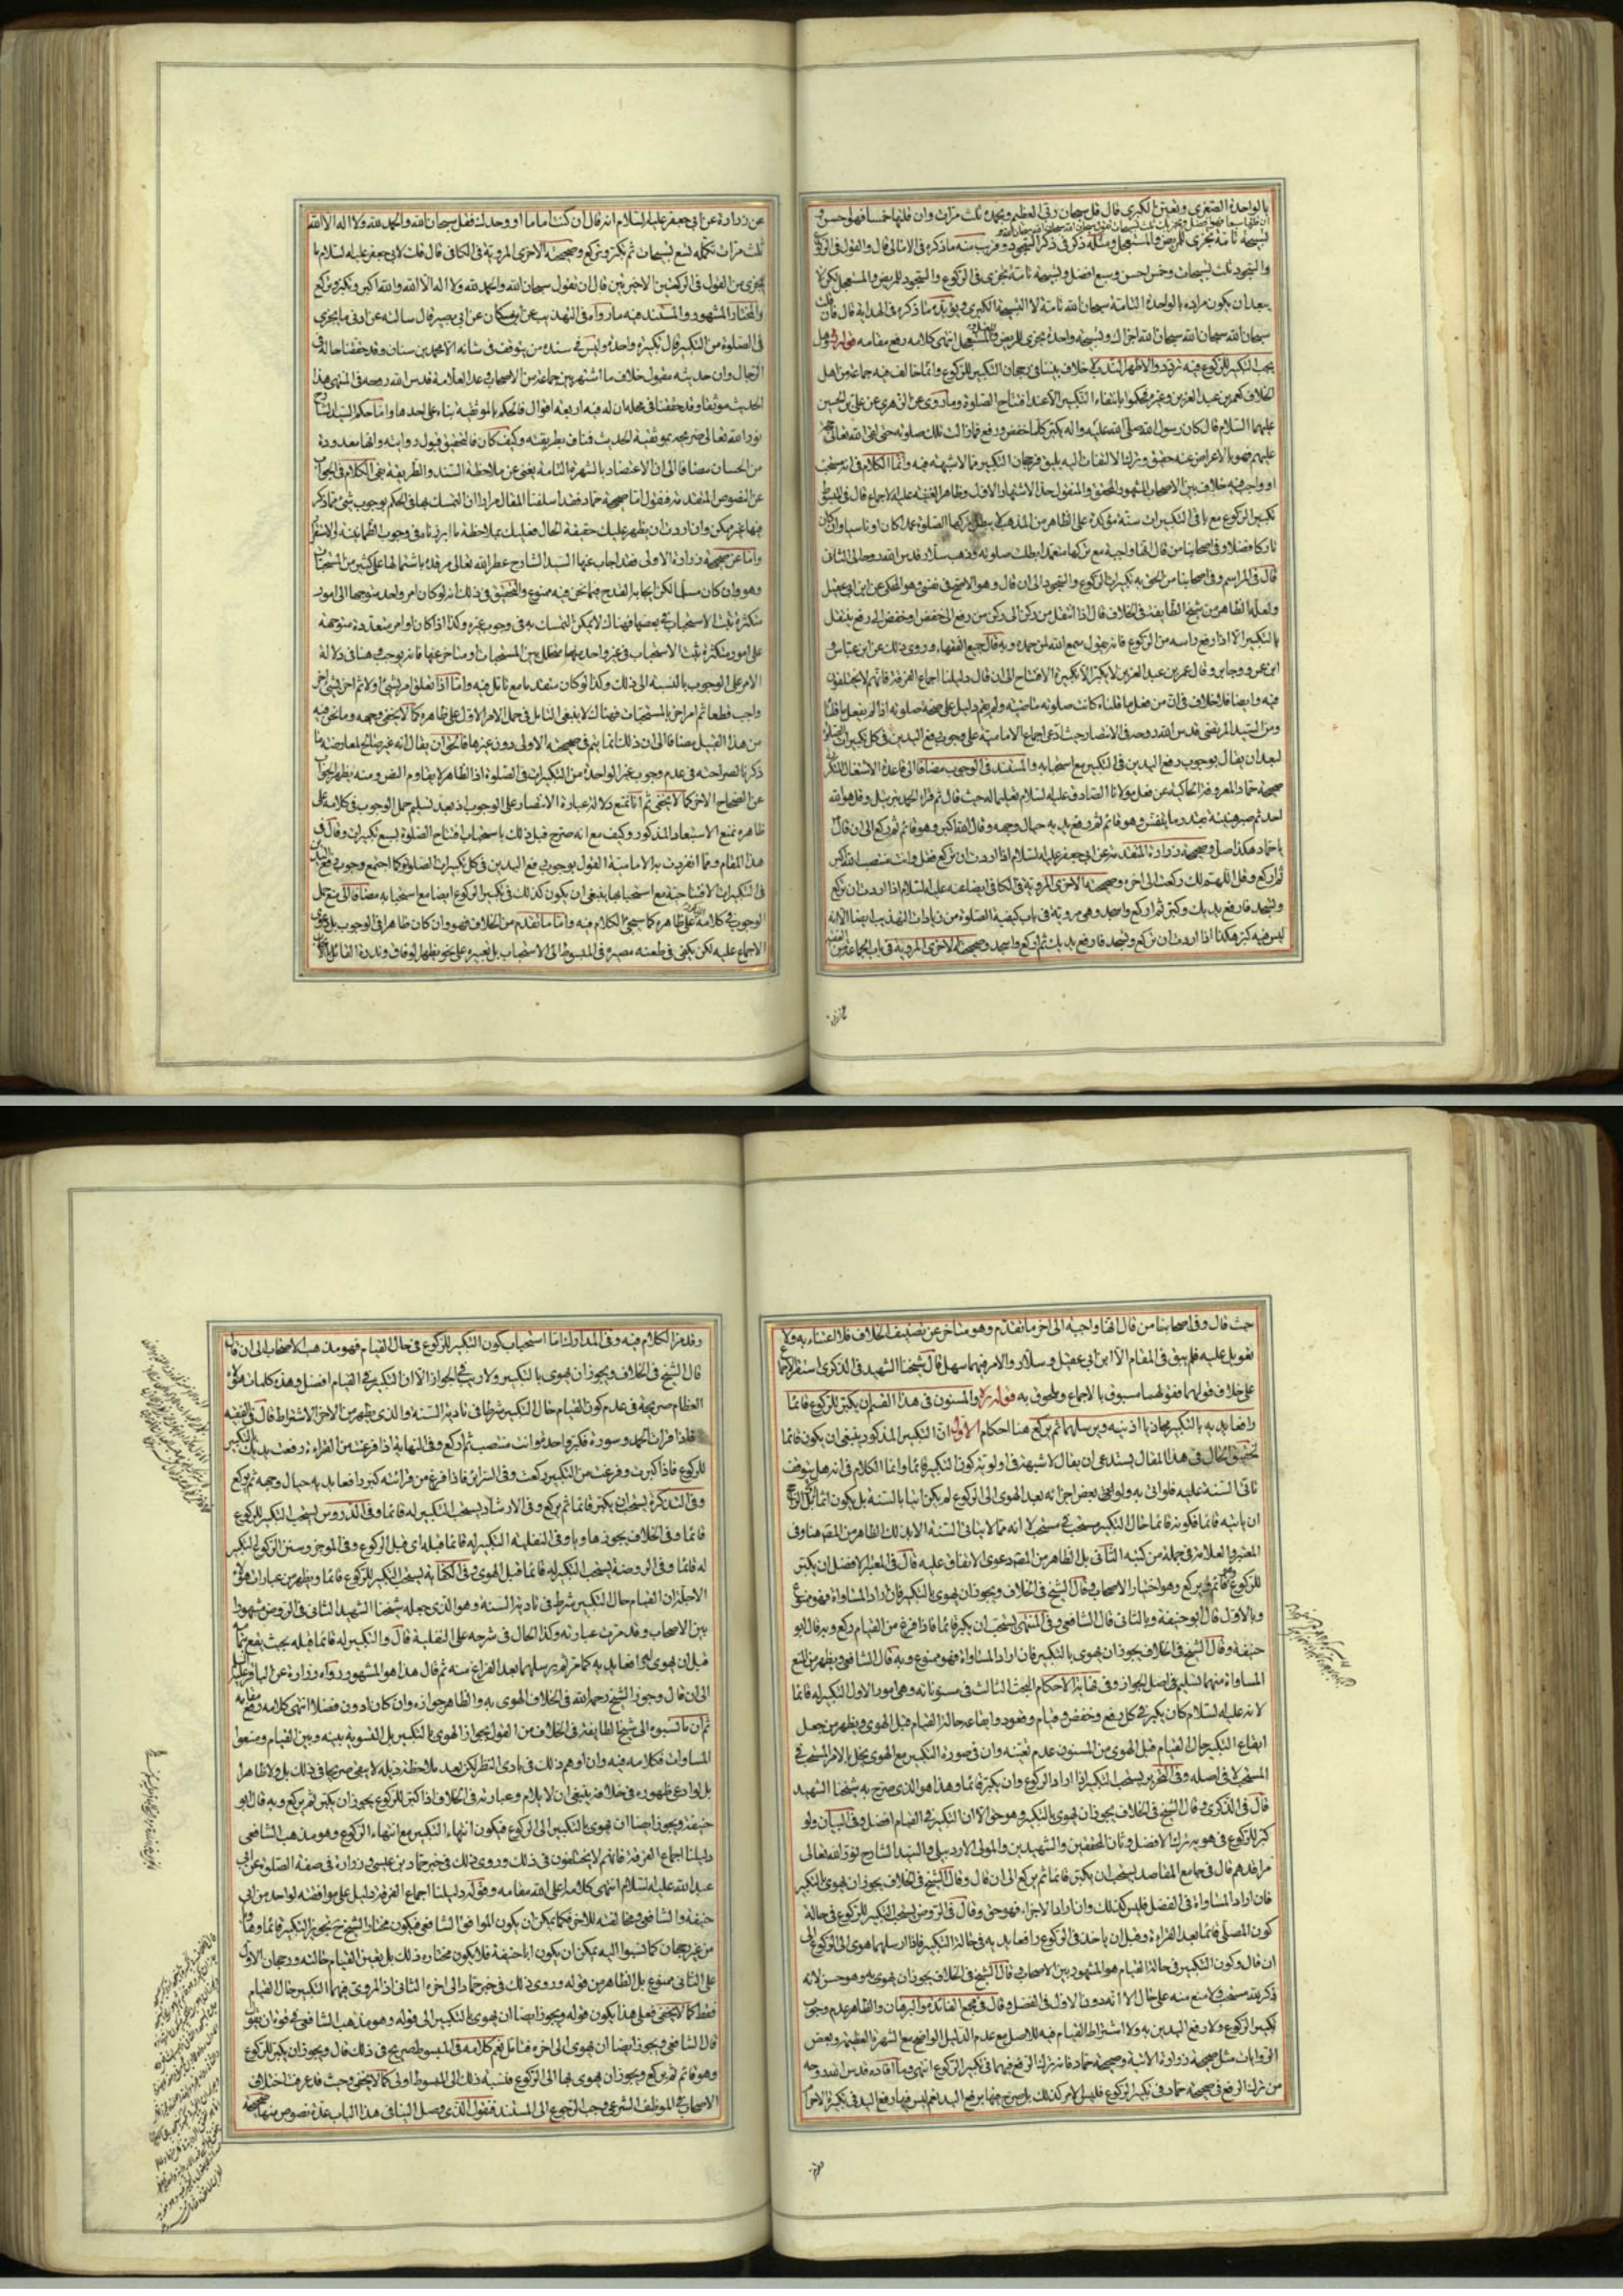 بالواحدة الصغرى وتعيين الكبرى قال قل سبحان ربي العظيم وبحمده ثلث مرات وان قلتها خمسا فهو احسن و
تسبيحة تامة تجزي للمريض والمستعجل ومثله ذكر في ذكر السجود وقريب منه ما ذكره في الامالي قال والقول في الركوع
والسجود ثلث تسبيحات وخمس احسن وسبع افضل وتسبيحة تامة تجزي في الركوع والسجود للمريض والمستعجل لكن لا
يبعد ان يكون مراده بالواحدة التامة سبحان الله تامة لا التسبيحة الكبرى ويؤيده ما ذكره في الهداية قال فان قلت
سبحان الله سبحان الله سبحان الله اجزاك وتسبيحة واحدة تجزي للمريض والمستعجل انتهى كلامه رفع مقامه قوله وهل
يجب التكبير للركوع فيه تردد والاظهر الندب لا خلاف بيننا في رجحان التكبير للركوع وانما خالف فيه جماعة من اهل
الخلاف كعمر بن عبد العزيز وغيره فحكموا بانتفاء التكبير الا عند افتتاح الصلوة وما روي عن الزهري عن علي بن الحسين
عليهما السلام قال كان رسول الله صلى الله عليه واله يكبر كلما خفض ورفع فما زالت تلك صلوته حتى لقي الله تعالى
او واجب فيه خلاف بين الاصحاب المشهور المحقق والمنقول حد الاشتهار الاول وظاهر الغنية عليه الاجماع قال في المبسوط
تكبير الركوع مع باقي التكبيرات سنة مؤكدة على الظاهر من المذهب لا يبطل بتركها الصلوة عمدا كان او ناسيا وان كان
تاركا فضلا وفي اصحابنا من قال انها واجبة مع تركها متعمدا بطلت صلوته وذهب سلار قدس الله روحه الى الثاني
قال في المراسم وفي اصحابنا من الحق به تكبيرات الركوع والسجود الى ان قال وهو الاصح في نفسي وهو المحكي عن ابن ابي عقيل
ولعله الظاهر من شيخ الطايفة في الخلاف قال اذا انتقل من ركن الى ركن من رفع الى خفض او خفض الى رفع ينتقل
بالتكبير الا اذا رفع راسه من الركوع فانه يقول سمع الله لمن حمده وبه قال جميع الفقهاء وروي ذلك عن ابن عباس و
ابن عمر وجابر وقال عمر بن عبد العزيز لا يكبر الا تكبيرة الافتتاح الى ان قال دليلنا اجماع الفرقة فانهم لا يختلفون
فيه وايضا فلا خلاف في ان من فعل ما قلناه كانت صلوته ماضية ولم يقم دليل على صحة صلوته اذا لم يفعل ما قلنا
ومن السيد المرتضى قدس الله روحه في الانتصار حيث ادعى اجماع الامامية على وجوب رفع اليدين في كل تكبيرات الصلوة
لبعد ان يقال بوجوب رفع اليدين في التكبير مع استحبابه والمستند في الوجوب مضافا الى قاعدة الاشتغال
صحيحة حماد المعروفة الحاكية عن فعل مولانا الصادق عليه السلام تعليما له حيث قال ثم قرا الحمد بترتيل وقل هو الله
احد ثم صبر هنيئة بقدر ما يتنفس وهو قائم ثم رفع يديه حيال وجهه وقال الله اكبر وهو قائم ثم ركع الى ان قال
يا حماد هكذا صل وصحيحة زرارة المتقدمة عن ابي جعفر عليه السلام اذا اردت ان تركع فقل وانت منتصب الله اكبر
ثم اركع وقل اللهم لك ركعت الى اخره وصحيحته الاخرى المروية في الكافي ايضا عنه عليه السلام اذا اردت ان تركع
وتسجد فارفع يديك وكبر ثم اركع واسجد وهي مروية في باب كيفية الصلوة من زيادات التهذيب ايضا الا انه
ليس فيه كبر هكذا اذا اردت ان تركع وتسجد فارفع يديك ثم اركع واسجد وصحيحته الاخرى المروية في باب الجماعة من الفقيه
عن زرارة عن ابي جعفر عليه السلام انه قال ان كنت اماما او وحدك فقل سبحان الله والحمد لله ولا اله الا الله
ثلث مرات تكمله تسع تسبيحات ثم تكبر وتركع وصحيحته الاخرى المروية في الكافي قال قلت لابي جعفر عليه السلام ما
يجزي من القول في الركعتين الاخيرتين قال ان تقول سبحان الله والحمد لله ولا اله الا الله والله اكبر وتكبر وتركع
والمختار المشهور والمستند فيه ما رواه في التهذيب عن ابن مسكان عن ابي بصير قال سالته عن ادنى ما يجزي
في الصلوة من التكبير قال تكبيرة واحدة وليس في سنده من يتوقف في شانه الا محمد بن سنان وقد حققنا حاله في
الرجال وان حديثه مقبول خلاف ما اشتهر بين جماعة من الاصحاب وعد العلامة قدس الله روحه في المنتهى هذا
الحديث موثقا وقد حققنا في محله ان له فيه اربعة اقوال فالحكم بالموثقية بناء على احدها واما حكم السيد الشارح
نور الله تعالى ضريحه بموثقية الحديث فمناف بطريقته وكيف كان فالتحقيق قبول روايته وانها معدودة
من الحسان مضافا الى ان الاعتضاد بالشهرة التامة يغني عن ملاحظة السند والطريقة بقي الكلام في الجواب
عن النصوص المتقدمة فنقول اما صحيحة حماد فقد اسلفنا المقال مرارا ان التمسك بها في الحكم بوجوب شئ مما ذكر
فيها غير ممكن وان اردت ان يظهر عليك حقيقة الحال فعليك بملاحظة ما ابرزناه في وجوب الطمانينة والاستقرار
واما عن صحيحة زرارة الاولى فقد اجاب عنها السيد الشارح عطر الله تعالى مرقده باشتمالها على كثير من المستحبات
وهو وان كان مسلما لكن ايجابه القدح فيما نحن فيه ممنوع والتحقيق في ذلك انه لو كان امر واحد متوجها الى امور
متكثرة ثبت الاستحباب في بعضها فهناك لا يمكن التمسك به في وجوب غيره وكذا اذا كان اوامر متعددة متوجهة
على امور متكثرة ثبت الاستحباب في غير واحد منها متخلل بين المستحبات او متاخر عنها فانه يوجب وهنا في دلالة
الامر على الوجوب بالنسبة الى ذلك وكذا لو كان متقدما مع تامل فيه واما اذا تعلق امر بشئ اولا ثم اخر بشئ اخر
واجب قطعا ثم امر اخر بالمستحبات فهناك لا ينبغي التامل في حمل الامر الاول على ظاهره كما لا يخفى وجهه وما نحن فيه
من هذا القبيل مضافا الى ان ذلك انما يتم في صحيحته الاولى دون غيرها فالحق ان يقال انه غير صالح لمعارضة ما
ذكرنا لصراحته في عدم وجوب غير الواحدة من التكبيرات في الصلوة اذ الظاهر لا يقاوم النص ومنه يظهر الجواب
عن الصحاح الاخر كما لا يخفى ثم انا نمنع دلالة عبارة الانتصار على الوجوب اذ بعد تسليم حمل الوجوب في كلامه على
ظاهره نمنع الاستبعاد المذكور وكيف مع انه صرح قبل ذلك باستحباب افتتاح الصلوة بسبع تكبيرات وقال في
هذا المقام ومما انفردت به الامامية القول بوجوب رفع اليدين في كل تكبيرات الصلوة فكما اجتمع وجوب رفع اليدين
في التكبيرات الافتتاحية مع استحبابها ينبغي ان يكون كذلك في تكبير الركوع ايضا مع استحبابه مضافا الى منع حمل
الوجوب في كلامه على ظاهره كما سيجئ الكلام فيه واما ما تقدم من الخلاف فهو وان كان ظاهرا في الوجوب بل
الاجماع عليه لكن يكفي في طعنه مصيره في المبسوط الى الاستحباب بل تعبيره على نحو يظهر الوفاق وندرة القائل
حيث قال وفي اصحابنا من قال انها واجبة الى اخر ما تقدم وهو متاخر عن تصنيف الخلاف فلا اعتناء به ولا
تعويل عليه فلم يبق في المقام الا ابن ابي عقيل وسلار والامر فيهما سهل قال شيخنا الشهيد في الذكرى استقر الاجماع
على خلاف قولهما فقولهما مسبوق بالاجماع وملحوق به قوله والمسنون في هذا القسم ان يكبر للركوع قائما
رافعا يديه بالتكبير محاذيا اذنيه ويرسلهما ثم يركع هنا احكام الاول ان التكبير المذكور ينبغي ان يكون قائما
تحقيق الحال في هذا المقال يستدعي ان يقال لا شبهة في اولوية كون التكبير قائما وانما الكلام في انه هل يتوقف
تادي السنة عليه فلو اتى به ولو في بعض اجزائه بعد الهوي الى الركوع لم يكن اتيا بالسنة بل يكون اتيا
ان ياتيه قائما فكونه قائما حال التكبير مستحب في مستحب لا انه مما لا يتاتى السنة الا بذلك الظاهر من المصنف هنا وفي
المعتبر والعلامة في جملة من كتبه الثاني بل الظاهر من المصنف دعوى الاتفاق عليه قال في المعتبر الافضل ان يكبر
للركوع وهو قائم ثم يركع وهو اختيار الاصحاب وقال الشيخ في الخلاف ويجوز ان يهوي بالتكبير فان اراد المساواة فهو ممنوع
وبالاول قال ابو حنيفة وبالثاني قال الشافعي وفي المنتهى يستحب ان يكبر قائما فاذا فرغ من القيام ركع وبه قال ابو
حنيفة وقال الشيخ في الخلاف يجوز ان يهوي بالتكبير فان اراد المساواة فهو ممنوع وبه قال الشافعي ويظهر من منع
المساواة منهما تسليم اصل الجواز وفي نهاية الاحكام البحث الثالث في مسنوناته وهي امور الاول التكبير له قائما
لانه عليه السلام كان يكبر في كل رفع وخفض وقيام وقعود وايقاعه حالة القيام قبل الهوي ويظهر من جعل
ايقاع التكبير حال القيام قبل الهوي من المسنون عدم تعينه وان في صورة التكبير مع الهوي يخل الامر المستحب في
المستحب لا في اصله وفي التحرير يستحب التكبير اذا اراد الركوع وان يكبر قائما وهذا هو الذي صرح به شيخنا الشهيد
قال في الذكرى وقال الشيخ في الخلاف يجوز ان يهوي بالتكبير وهو حق الا ان التكبير في القيام افضل وفي البيان ولو
كبر للركوع في هويه ترك الافضل وثاني المحققين والشهيدين والمولى الاردبيلي والسيد الشارح نور الله تعالى
مراقدهم قال في جامع المقاصد يستحب ان يكبر قائما ثم يركع الى ان قال وقال الشيخ في الخلاف يجوز ان يهوي بالتكبير
فان اراد المساواة في الفضل فليس كذلك وان اراد الاجزاء فهو حق وقال في الروض يستحب التكبير للركوع في حالة
كون المصلي قائما بعد القراءة وقبل ان ياخذ في الركوع رافعا يديه في حالة التكبير فاذا ارسلهما هوى الى الركوع الى
ان قال وكون التكبير في حالة القيام هو المشهور بين الاصحاب وقال الشيخ في الخلاف يجوز ان يهوي به وهو حسن لانه
ذكر لله مستحب لا منع منه على حال الا انه دون الاول في الفضل وقال في مجمع الفائدة والبرهان والظاهر عدم وجوب
تكبير الركوع ولا رفع اليدين به ولا اشتراط القيام فيه للاصل مع عدم الدليل الواضح مع الشهرة العظيمة وبعض
الروايات مثل صحيحة زرارة الاتية وصحيحة حماد فانه ترك الرفع فيهما في تكبير الركوع انتهى وما افاده قدس الله روحه
من ترك الرفع في صحيحة حماد في تكبير الركوع فليس الامر كذلك بل صرح فيها برفع اليد نعم ليس فيها رفع اليد في تكبيرة الاحرام
وقد مر الكلام فيه وفي المدارك اما استحباب كون التكبير للركوع في حال القيام فهو مذهب الاصحاب الى ان قال
قال الشيخ في الخلاف ويجوز ان يهوي بالتكبير ولا ريب في الجواز الا ان التكبير في القيام افضل وهذه كلمات هؤلاء
العظام صريحة في عدم كون القيام حال التكبير شرطا في تادية السنة والذي يظهر من الاخر الاشتراط قال في الفقيه
فاذا قرات الحمد وسورة فكبر واحدة وانت منتصب ثم اركع وفي النهاية فاذا فرغت من القراءة رفعت يديك بالتكبير
للركوع فاذا كبرت وفرغت من التكبير ركعت وفي السرائر فاذا فرغ من قرائته كبر رافعا يديه حيال وجهه ثم يركع
وفي التذكرة يستحب ان يكبر قائما ثم يركع وفي الارشاد يستحب التكبير له قائما وفي الدروس يستحب التكبير للركوع
قائما وفي الخلاف يجوز هاويا وفي النفلية التكبير له قائما قبله اي قبل الركوع وفي الموجز وسنن الركوع التكبير
له قائما وفي الروضة يستحب التكبير له قائما قبل الهوي وفي الكفاية يستحب التكبير للركوع قائما ويظهر من عبارات هؤلاء
الاجلة ان القيام حال التكبير شرط في تادية السنة وهو الذي جعله شيخنا الشهيد الثاني في الروض مشهورا
بين الاصحاب وقد مرت عبارته وكذا الحال في شرحه على النفلية قال والتكبير له قائما قبله بحيث يقع تمامه
قبل ان يهوي له رافعا يديه كما مر ثم يرسلهما بعد الفراغ منه ثم قال هذا هو المشهور ورواه زرارة عن الباقر عليه السلام
الى ان قال وجوز الشيخ رحمه الله في الخلاف الهوي به والظاهر جوازه وان كان ادون فضلا انتهى كلامه رفع مقامه
ثم ان ما نسبوه الى شيخ الطايفة في الخلاف من القول بجواز الهوي بالتكبير بل التسوية بينه وبين القيام ومنعوا
المساواة فكلامه فيه وان اوهم ذلك في بادي النظر لكن بعد ملاحظة ذيله لا يبقى صريحا في ذلك بل ولا ظاهرا
بل لو ادعي ظهوره في خلافه ينبغي ان لا يلام وعبارته في الخلاف اذا كبر للركوع يجوز ان يكبر ثم يركع وبه قال ابو
حنيفة ويجوز ايضا ان يهوي بالتكبير الى الركوع فيكون انتهاء التكبير مع انتهاء الركوع وهو مذهب الشافعي
دليلنا اجماع الفرقة فانهم لا يختلفون في ذلك وروي ذلك في خبر حماد بن عيسى وزرارة في صفة الصلوة عن ابي
عبد الله عليه السلام انتهى كلامه اعلى الله مقامه وقوله دليلنا اجماع الفرقة دليل على موافقته لواحد من ابي
حنيفة والشافعي ومخالفته للاخر فكما يمكن ان يكون الموافق الشافعي فيكون مختار الشيخ ح تجويز التكبير قائما وهاويا
من غير رجحان كما نسبوا اليه يمكن ان يكون ابا حنيفة فلا يكون مختاره ذلك بل يعين القيام حالته ورجحان الاول
على الثاني ممنوع بل الظاهر من قوله وروي ذلك في خبر حماد الى اخره الثاني اذ المروي فيهما التكبير حال القيام
فقط كما لا يخفى فعلى هذا يكون قوله ويجوز ايضا ان يهوي بالتكبير الى قوله وهو مذهب الشافعي في قوة ان يقول
قال الشافعي ويجوز ايضا ان يهوي الى اخره فتامل نعم كلامه في المبسوط صريح في ذلك قال ويجوز ان يكبر للركوع
وهو قائم ثم يركع ويجوز ان يهوي بها الى الركوع فنسبة ذلك الى المبسوط اولى كما لا يخفى وحيث قد عرفت اختلاف
الاصحاب في الموظف الشرعي وجب الرجوع الى المستند فنقول الذي وصل الينا في هذا الباب عدة نصوص منها صحيحة